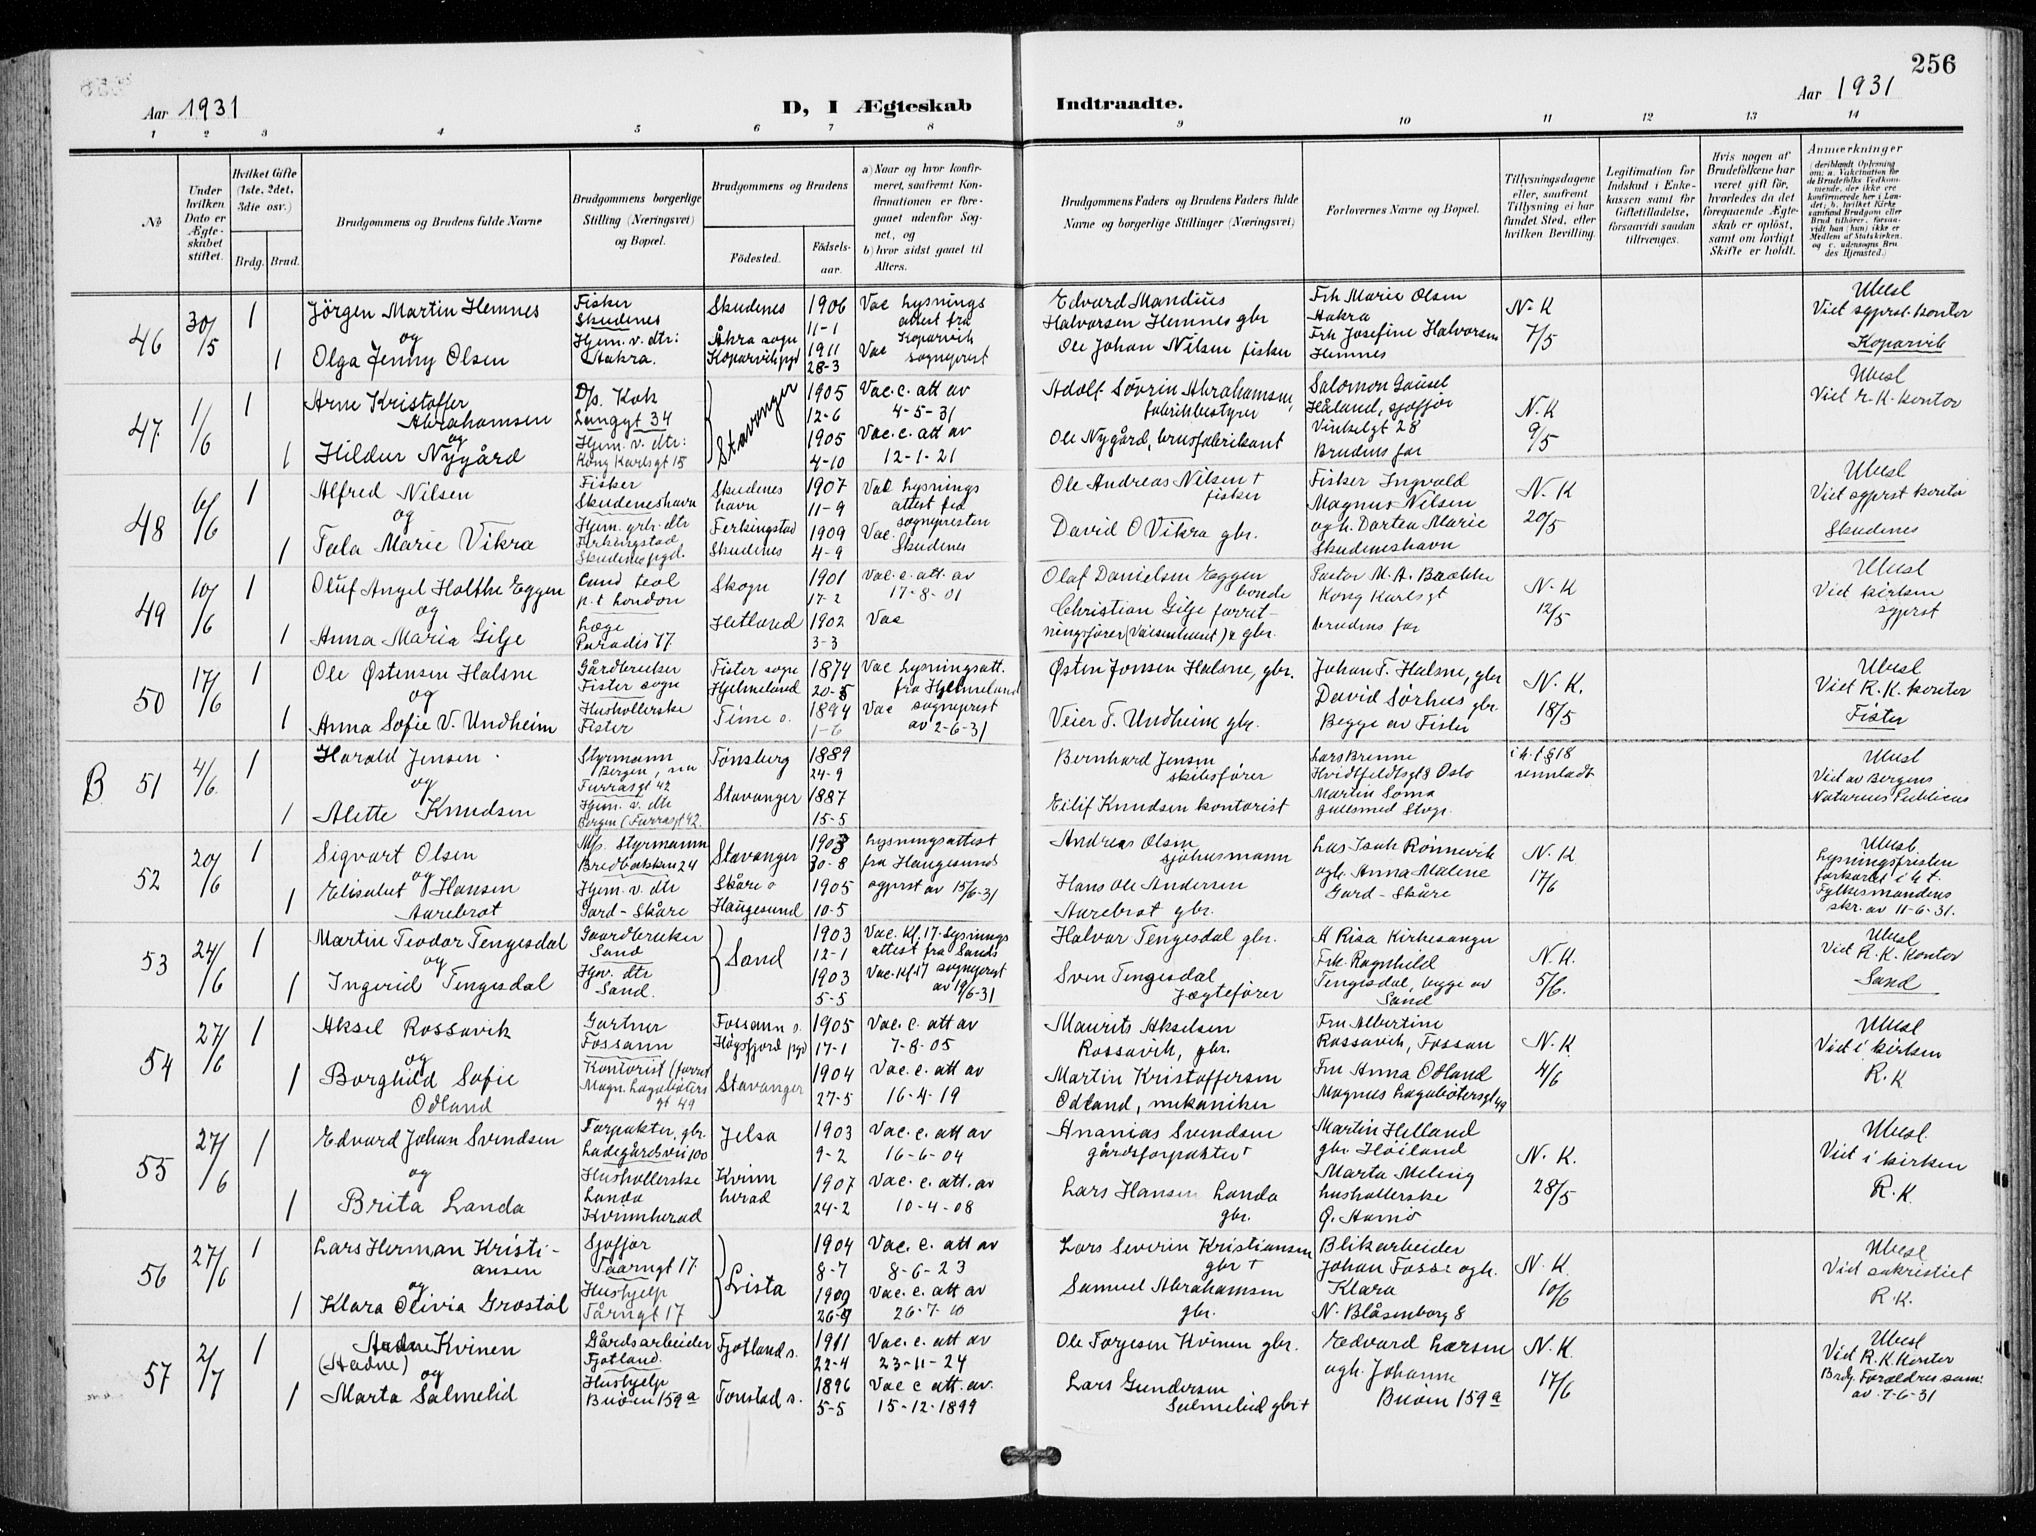 256
Aar 1931
D, I Ægteskab
Indtraadte.
Aar 1931
1 2 3 4 5 6 7 8 9 10 11 12 13 14
№
Under hvilken Dato er Ægteskabet stiftet.
Hvilket Gifte (1ste, 2det, 3die osv.)
Brdg. Brud.
Brudgommens og Brudens fulde Navne
Brudgommens borgerlige Stilling (Næringsvei) og Bopæl.
Brudgommens og Brudens
Födested.
Födselsaar.
a) Naar og hvor konfirmeret, saafremt Konfirmationen er foregaaet udenfor Sognet, og
b) hvor sidst gaaet til Alters.
Brudgommens Faders og Brudens Faders fulde Navne og borgerlige Stillinger (Næringsvei)
Forlovernes Navne og Bopæl.
Tillysningsdagene eller, saafremt Tillysning ei har fundet Sted, efter hvilken Bevilling.
Legitimation for Indskud i Enkekassen samt for Giftetilladelse, forsaavidt saadan tiltrænges.
Hvis nogen af Brudefolkene har været gift før, hvorledes da det foregaaende Ægteskab er oplöst, samt om lovligt Skifte er holdt.
Anmærkninger
46 30/5 1
Jörgen Martin Hemnes
og
1 Olga Jenny Olsen
Fisker
Skudenes
Hjem. v. dtr:
Aakra.
Skudenes
Åkra sogn
Koparvik pgd
1906
11-1
1911
28-3
Vac Lysnings
attest fra
Koparvik
Vac sogneprest
Edvard Mandius
Halvorsen Hemnes gbr
Ole Johan Nilsen fisker
Frk Marie Olsen
Aakra
Frk Josefine Halvorsen
Hemnes
N-K
7/5
Ubesl
Viet sgprst. kontor
Koparvik
47 1/6 1
Arne Kristoffer
Abrahamsen
og
1 Hildur Nygård
D/s. Kok
Langgt 34
Hjem. v. dtr:
Kong Karlsgt 15
Stavanger
1905
12-6
1905
4-10
Vac. c. att av
4-5-31
Vac. c. att av
12-1-21
Adolf Sövrin Abrahamsen,
fabrikbestyrer
Ole Nygård, brusfabrikant
Salomon Gausel
Håland, sjofför
Vinkelgt 28
Brudens far
N.K
9/5
Ubesl
Viet r.K. kontor
48 6/6 1
Alfred Nilsen
og
1 Tala Marie Vikra
Fisker
Skudeneshavn
Hjem. gbr. dtr
Ferkingstad
Skudenes pgd.
Skudenes
havn
Ferkingstad
Skudenes
1907
11-9
1909
4-9
Vac Lysnings
attest fra
sognepresten
Vac. Skudenes
Ole Andreas Nilsen +
fisker
David O Vikra gbr.
Fisker Ingvald
Magnus Nilsen
og h. Dortea Marie
Skudeneshavn
N.K
20/5
Ubesl
Viet sgprst kontor
Skudenes
49 10/6 1
Oluf Angel Holthe Eggen
og
1 Anna Maria Gilje
Cand teol
p.t London
Læge
Paradis 17
Skogn
Hetland
1901
17-2
1902
3-3
Vac. c. att. av
17-8-01
Vac
Olaf Danielsen Eggen
bonde
Christian Gilje forret-
ningsfører (Vaisenhuset) & gbr.
Pastor M. A. Brekke
Kong Karlsgt
brudens far
N-K
12/5
Ubesl
Viet kirken
sgprst
50 17/6 1
Ole Østensen Halsne
og
1 Anna Sofie V. Undheim
Gårdbruker
Fister sogn
Husholderske
Fister
Fister sogn
Hjelmeland
Time s.
1874
20-5
1894
1-6
Vac Lysningsatt.
fra Hjelmeland
Vac sogneprest
av 2-6-31
Østen Jonsen Halsne, gbr.
Veier T. Undheim gbr.
Johan T. Halsne, gbr
David Sörhus gbr.
Begge av Fister
N.K.
18/5
Ubesl
Viet R.K. kontor
Fister
B 51 4/6. 1
Harald Jensen.
og
1 Alette Knudsen
Styrmann
Bergen, nu
Furrasgt 42
Hjem. v. dtr
Bergen (Furrasgt 42.
Tønsberg
Stavanger
1889
24-9
1887
15-5
Bernhard Jensen
skibsfører
Eilif Knudsen kontorist
Lars Brenne
Hvidtfeldtsgt 8 Oslo
Martin Soma
gullsmed Stvgr.
i h.t § 18
unnladt
Ubesl
Viet av Bergens
Notarius Publicus
52 20/6 1
Sigvart Olsen
og
1 Elisabet Hansen
Aarebrot
M/s. Styrmann
Bredbakken 24
Hjem. v. dtr
Gard-Skåre
Stavanger
Skåre s
Haugesund
1903
30-8
1905
10-5
Lysningsattest
fra Haugesund
sgprst av 15/6-31
Andreas Olsen
sjøhusmann
Hans Ole Andersen
Aarebrot gbr.
Las Isak Rönnevik
ogh. Anna Malene
Gard-Skåre
N.K
17/6
Ubesl.
Lysningsfristen
forkortet i h.t.
Fylkesmandens
skr. av 11-6-31.
53 24/6 1
Martin Teodor Tengesdal
og
1 Ingerid Tengesdal
Gaardbruker
Sand
Hjv. dtr
Sand.
Sand
1903
12-1
1903
5-5
Vac. Kl. 17. Lysnings
attest fra Sands
Vac. Kl 17 sogneprest
av 19/6-31
Halvor Tengesdal gbr.
Sven Tengesdal
Jægtefører
A Risa Kirkesanger
Frk. Ragnhild
Tengesdal, begge av
Sand
N.K.
5/6.
Ubesl
Viet R.K. kontor
Sand
54 27/6 1
Aksel Rossavik
og
1 Borghild Sofie
Odland
Gartner
Fossann
Kontorist (forret
Magn. Lagabøters
gt 49
Fossann s.
Høgsfjord pgd
Stavanger
1905
17-1
1904
27-5
Vac. c. att av
7-8-05
Vac. c. att av
16-4-19
Maurits Akselsen
Rossavik, gbr.
Martin Kristoffersen
Odland, mekaniker
Fru Albertine
Rossavik, Fossan
Fru Anna Odland
Magnus Lagabøtersgt 49
N.K
4/6
Ubesl
Viet i kirken
R.K
55 27/6 1
Edvard Johan Svendsen
og
1 Brita Landa
Forpakter, gbr.
Ladegårdsvei 100
Husholderske
Landa
Kvinnherad
Jelsa
Kvinn
herad
1903
9-2
1907
24-2
Vac. c. att av
16-6-04
Vac. c. att. av
10-4-08
Ananias Svendsen
gårdsforpakter
Lars Hansen Landa
gbr.
Martin Helland
gbr Höiland
Marta Meling
husholderske
N.K.
28/5
Ubesl.
Viet i kirken
R.K.
56 27/6 1
Lars Herman Kristi-
ansen
og
1 Klara Olivia Grostøl
Sjofför
Taarngt 17.
Hushjelp
Tårngt 17
Lista
1904
8-7
1909
26-9
Vac. c. att av
8-6-23
Vac. c. att av
26-7-10
Lars Severin Kristiansen
gbr +
Samuel Abrahamsen
gbr.
Blikarbeider
Johan Fosse ogh.
Klara
N. Blåsenborg 8
N.K
10/6
Ubesl
Viet sakristiet
R.K.
57 2/7 1
Aadne Kvinen
(Aadne)
og
1 Marta Salmelid
Gårdsarbeider
Fjotland.
Hushjelp
Buöen 159a
Fjotland s.
Tonstad s.
1911
22-4
1896
5-5
Vac. c. att av
23-11-24
Vac c att. av.
15-12-1899
Ole Torjesen Kvinen gbr.
Lars Gundersen
Salmelid gbr+
Edvard Larsen
ogh. Johanne
Buöen 159a
N.K.
17/6
Ubesl
Viet R.K. Kontor
Brdg. Forældres sam:
av 7-6-31